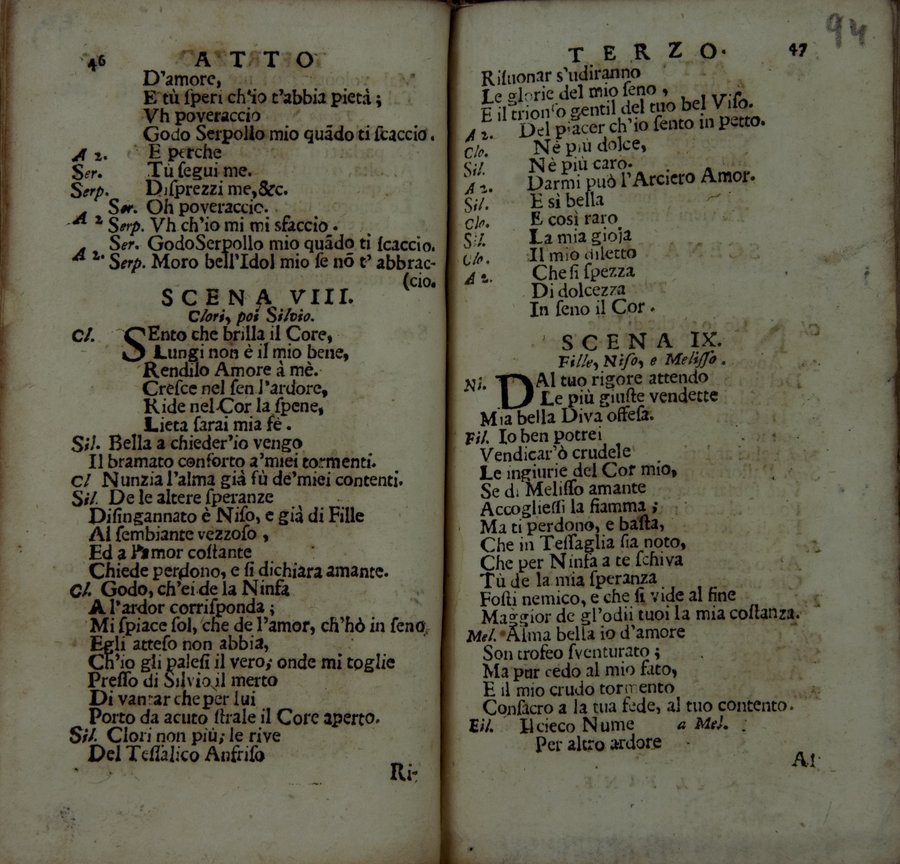 46 ATTO
D'amore,
E tù ſperi ch'io t'abbia pietà ;
Vh poveraccio
Godo Serpollo mio quãdo ti ſcaccio.
A 2. E perche
Ser. Tù ſegui me.
Serp. Diſprezzi me,&c.
Ser. Oh poveraccio.
A 2 Serp. Vh ch'io mi mi sfaccio .
Ser. Godo Serpollo mio quãdo ti ſcaccio.
A 2. Serp. Moro bell'Idol mio ſe nõ t' abbrac-
(cio.
SCENA VIII.
Clori, poi Silvio.
Cl. SEnto che brilla il Core,
Lungi non è il mio bene,
Rendilo Amore à mè.
Creſce nel ſen l'ardore,
Ride nel Cor la ſpene,
Lieta ſarai mia fè .
Sil. Bella a chieder'io vengo
Il bramato conforto a'miei tormenti.
Cl Nunzia l'alma già fù de'miei contenti.
Sil. De le altere ſperanze
Diſingannato è Niſo, e già di Fille
Al ſembiante vezzoſo ,
Ed a l'Amor coſtante
Chiede perdono, e ſi dichiara amante.
Cl. Godo, ch'ei de la Ninfa
A l'ardor corriſponda ;
Mi ſpiace ſol, che de l'amor, ch'hò in ſeno
Egli atteſo non abbia,
Ch'io gli paleſi il vero; onde mi toglie
Preſſo di Silvio il merto
Di vantar che per lui
Porto da acuto ſtrale il Core aperto.
Sil. Clori non più; le rive
Del Teſſalico Anfriſo
Ri-
TERZO. 47
94
Riſuonar s'udiranno
Le glorie del mio ſeno ,
E il trionfo gentil del tuo bel Viſo.
A 2. Del piacer ch'io ſento in petto.
Clo. Nè più dolce,
Sil. Nè più caro.
A 2. Darmi può l'Arciero Amor.
Sil. E sì bella
Clo. E così raro
Sil. La mia gioja
Clo. Il mio diletto
A 2. Che ſi ſpezza
Di dolcezza
In ſeno il Cor .
SCENA IX.
Fille, Niſo, e Meliſſo .
Ni. DAl tuo rigore attendo
Le più giuſte vendette
Mia bella Diva offeſa.
Fil. Io ben potrei
Vendicar'ò crudele
Le ingiurie del Cor mio,
Se di Meliſſo amante
Accoglieſſi la fiamma ;
Ma ti perdono, e baſta,
Che in Teſſaglia ſia noto,
Che per Ninfa a te ſchiva
Tù de la mia ſperanza
Foſti nemico, e che ſi vide al fine
Maggior de gl'odii tuoi la mia coſtanza.
Mel. Alma bella io d'amore
Son trofeo ſventurato ;
Ma pur cedo al mio fato,
E il mio crudo tormento
Conſacro a la tua fede, al tuo contento.
Eil. Il cieco Nume a Mel.
Per altro ardore
Al